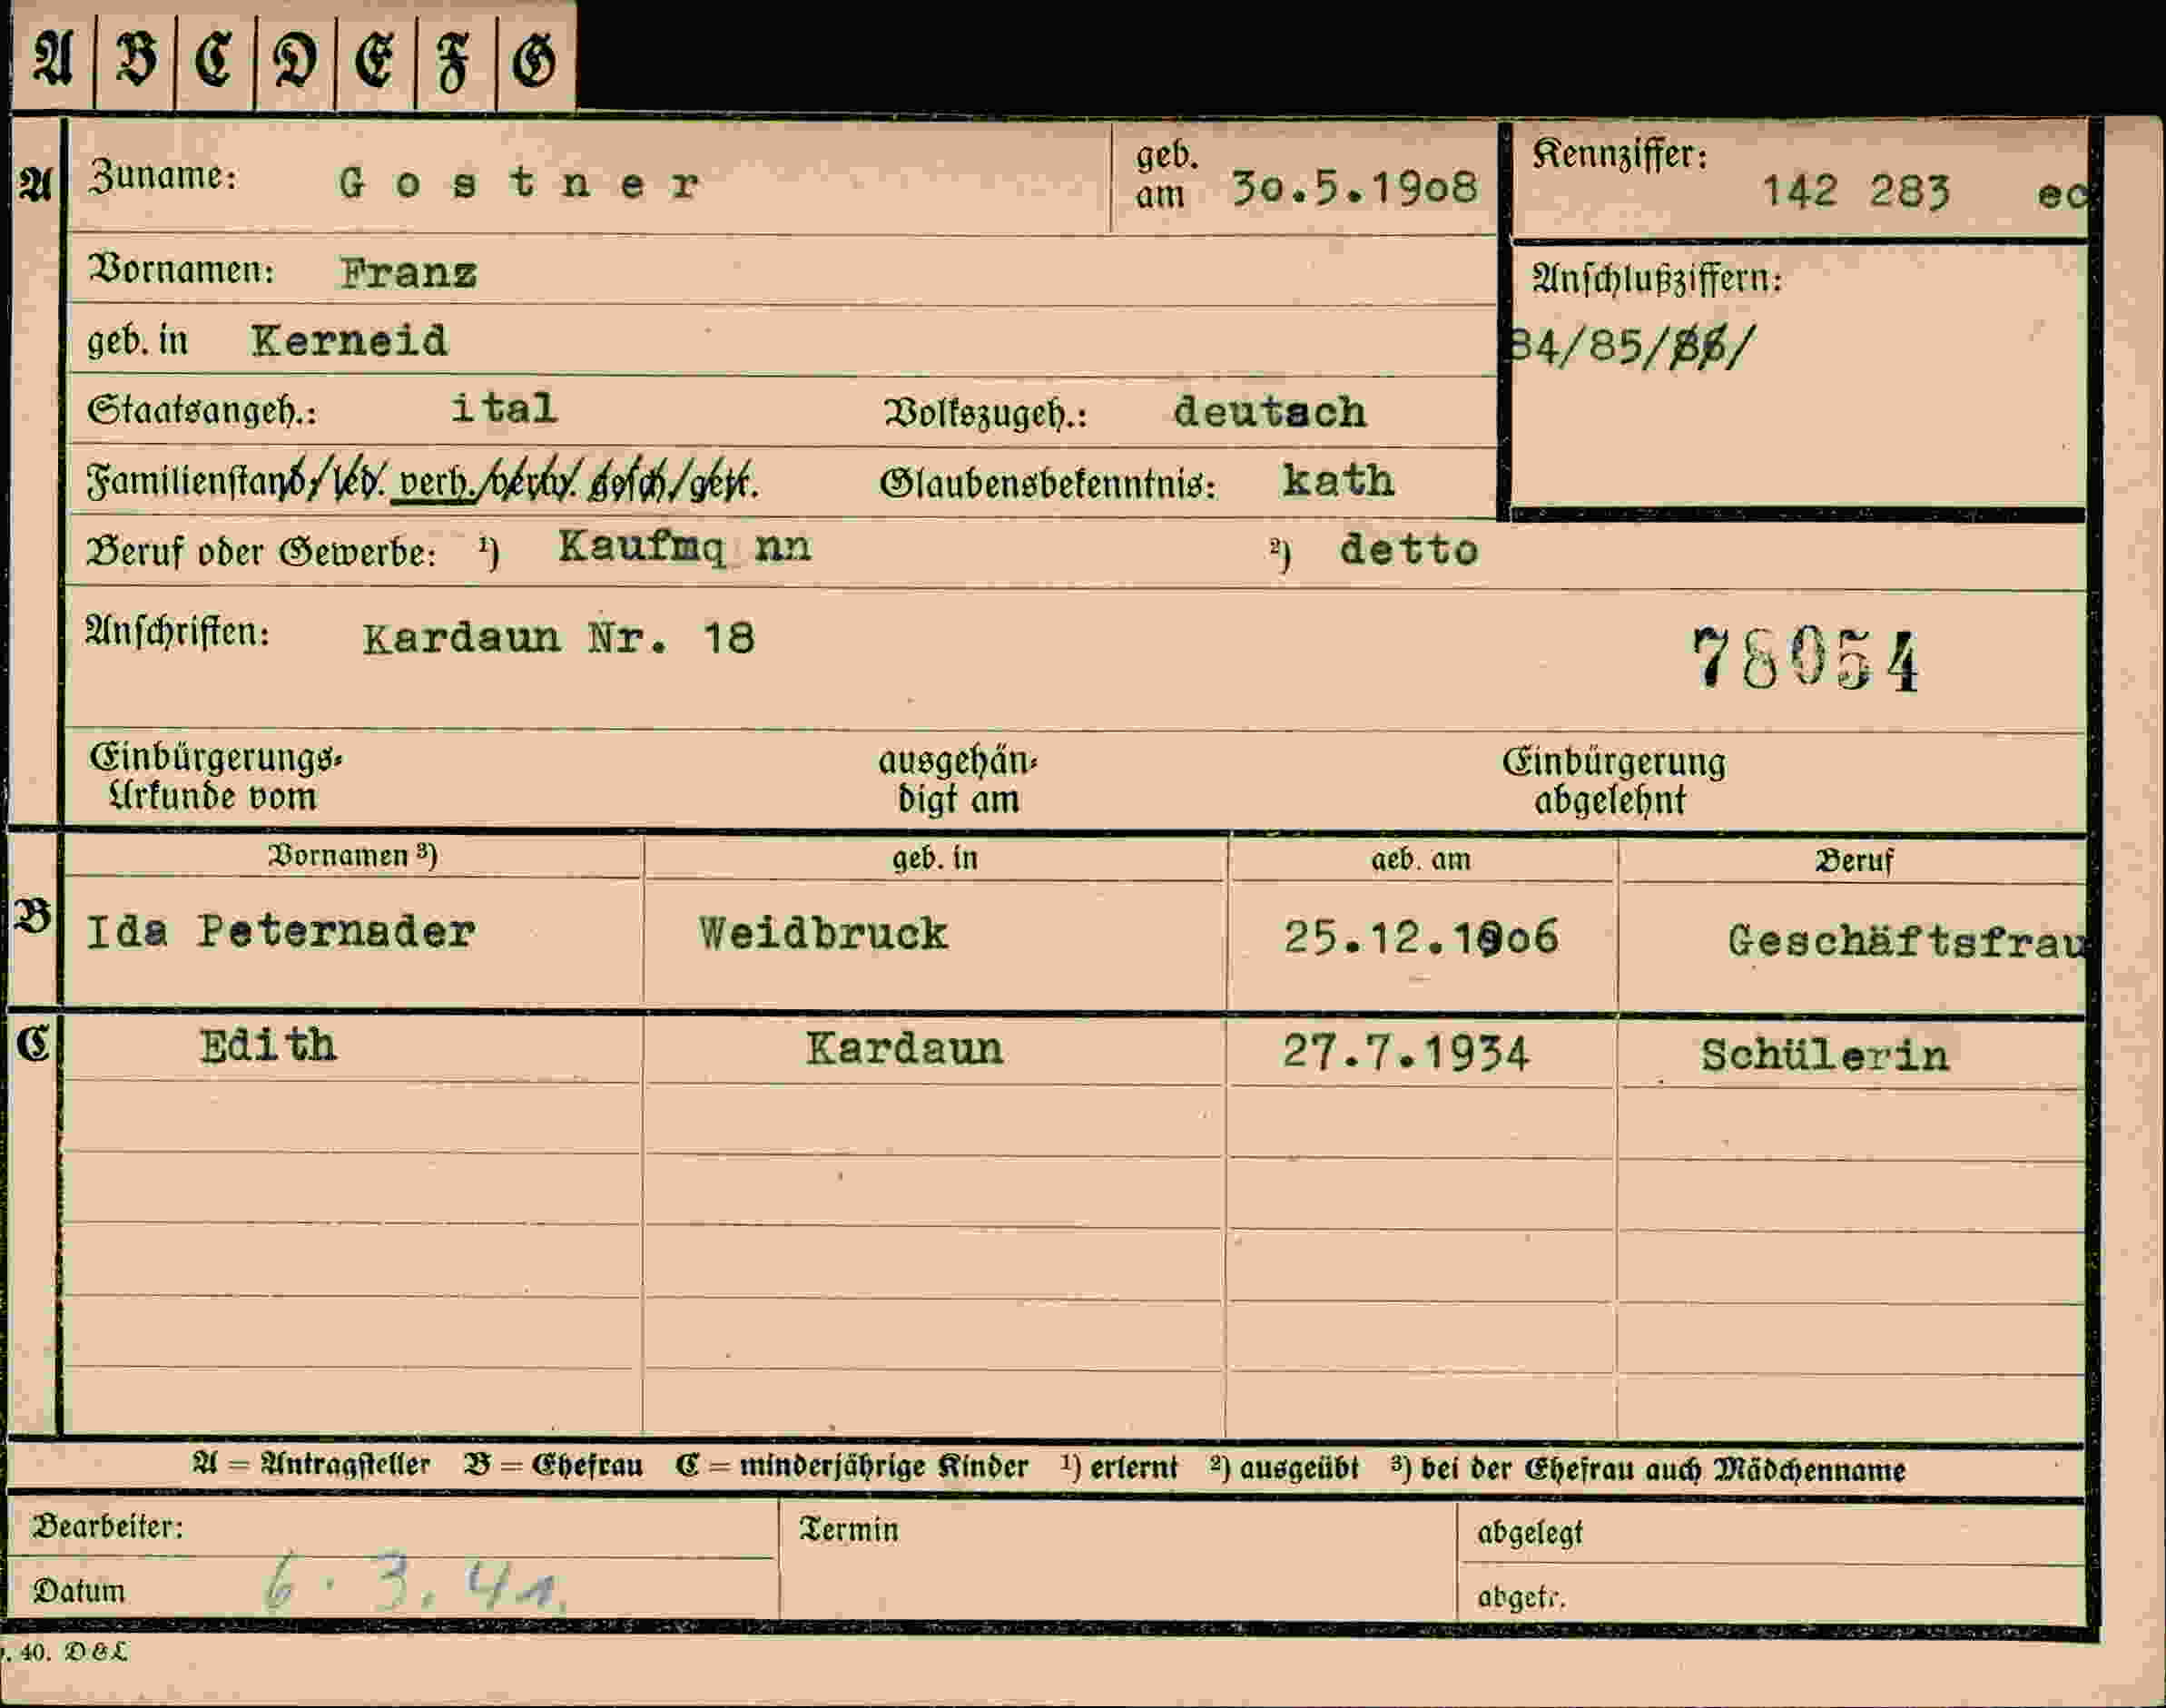 A B C D E F G
A Zuname: Gostner geb. am 30.5.1908 Kennziffer: 142 283 ec
Vornamen: Franz
Anschlußziffern:
geb. in Kerneid
84/85/86/
Staatsangeh.: ital Volkszugeh.: deutsch
Familienstand/led. verh./verw. gesch/getr. Glaubensbekenntnis: kath
Beruf oder Gewerbe: 1) Kaufmq nn 2) detto
Anschriften: Kardaun Nr. 18 78054
Einbürgerungs- ausgehän- Einbürgerung
Urkunde vom digt am abgelehnt
Vornamen 3) geb. in geb. am Beruf
B Ida Peternader Weidbruck 25.12.1906 Geschäftsfrau
C Edith Kardaun 27.7.1934 Schülerin
A = Antragsteller B = Ehefrau C = minderjährige Kinder 1) erlernt 2) ausgeübt 3) bei der Ehefrau auch Mädchenname
Bearbeiter: Termin abgelegt
Datum 6.3.41. abgetr.
. 40. D&L